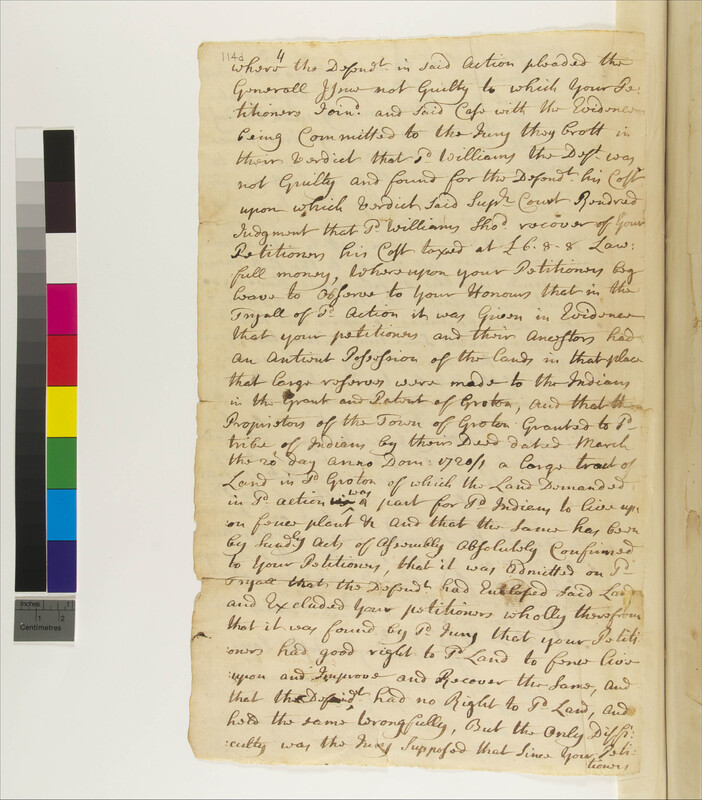 1148
4
where the Defendt in said Action pleaded the
Generall Issue not Guilty to which Your Pe:
titioners Joind and said Case with the Evidence
being Committed to the Jury they brott in
their Verdict that sd Williams the Deft was
not Guilty and found for the Defendt his Cost
upon which Verdict said Supr Court Rendred
Judgment that sd Williams Shod recover of Your
Petitioners his Cost taxed at £6-8-8 Law:
full money, Whereupon your Petitioners beg
leave to Observe to Your Honours that in the
Tryall of sd Action it was Given in Evidence
that your petitioners and their Ancestors had
an Antient Possession of the Lands in that place
that large reserves were made to the Indians
in the Grant and Patent of Groton, and that the
Propriators of the Town of Groton Granted to sd
tribe of Indians by their Deed dated March
the 20 day Anno Dom: 1720/1 a large tract of
Land in sd Groton of which the Land Demanded
in sd action was a part for sd Indians to live up:
on fence plant &c And that the same has been
by Sundry Acts of Assembly Absolutely Confirmed
to Your Petitioners, that it was Admitted on sd
Tryall that the Defendt had Enclosed said Land
and Excluded Your petitioners wholly therefrom
that it was found by sd Jury that your Petiti:
oners had good right to sd Land to fence live
upon and Improve and Recover the Same, and
that the Defendt had no Right to sd Land, and
held the same Wrongfully, But the Only Diffi:
:culty was the Jury Supposed that Since Your Peti:
tioners
Inches
1
Centimetres
1
2